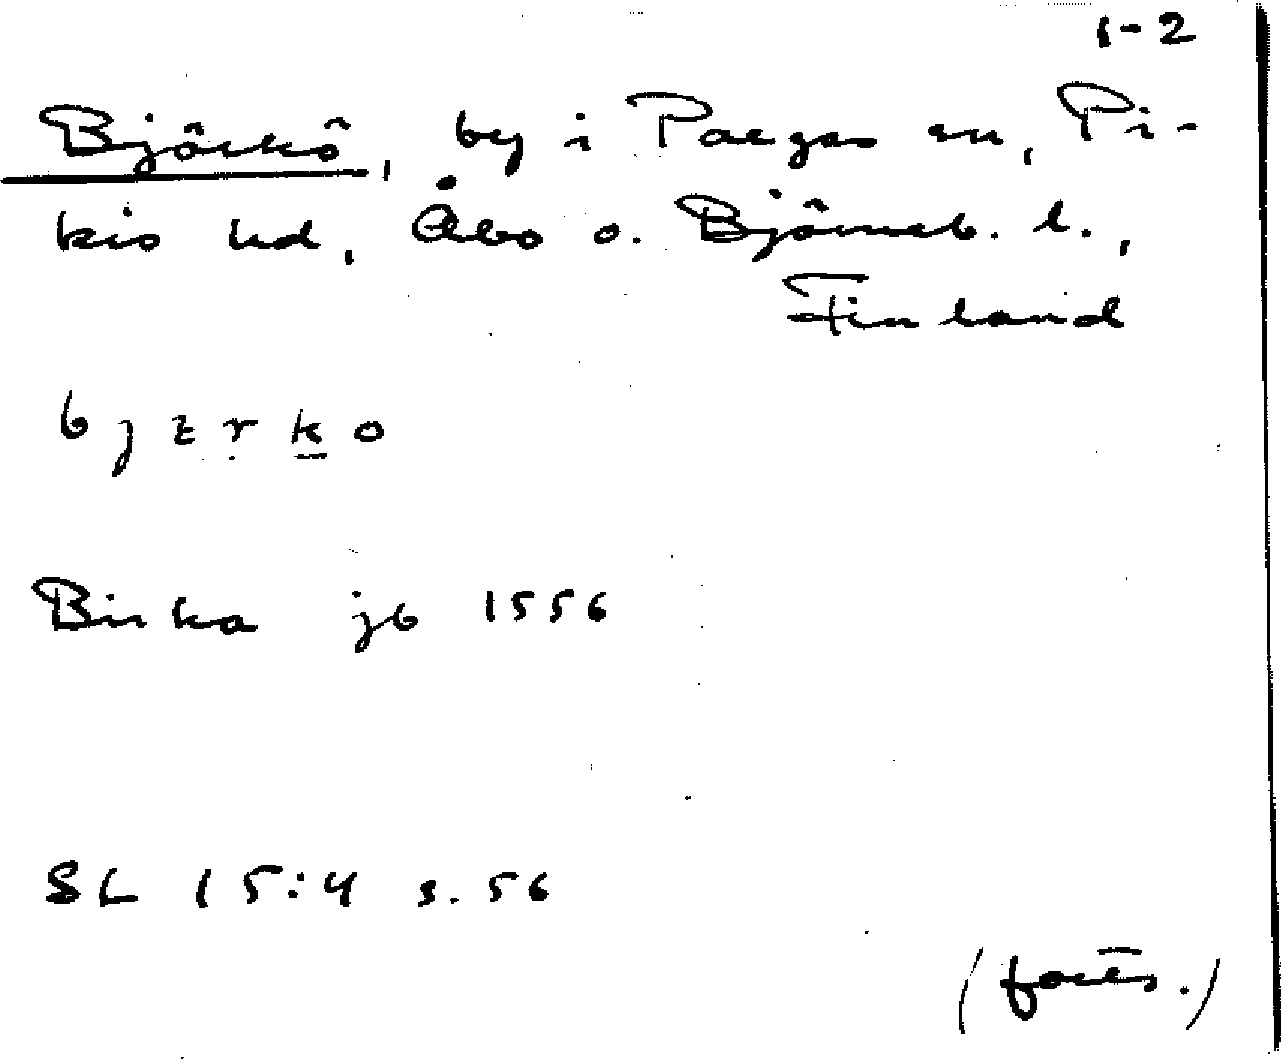 1-2
Björkö, by i Pargas sn, Pi-
kis hd, Åbo o. Björneb. l.,
Finland
bjɛrko
Birka jb 1556
SL 15:4 s. 56
(forts.)